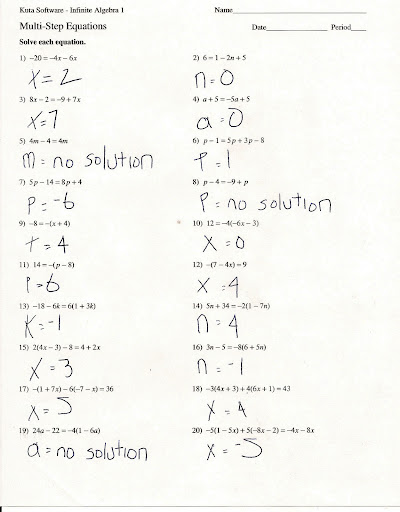 Kuta Software - Infinite Algebra 1
Name
Multi-Step Equations
Date Period
Solve each equation.
1) −20 = −4x − 6x
X = 2
2) 6 = 1 − 2n + 5
n = 0
3) 8x − 2 = −9 + 7x
X = 7
4) a + 5 = −5a + 5
a = 0
5) 4m − 4 = 4m
m = no solution
6) p − 1 = 5p + 3p − 8
P = 1
7) 5p − 14 = 8p + 4
P = -6
8) p − 4 = −9 + p
P = no solution
9) −8 = −(x + 4)
x = 4
10) 12 = −4(−6x − 3)
X = 0
11) 14 = −(p − 8)
P = 6
12) −(7 − 4x) = 9
X = 4
13) −18 − 6k = 6(1 + 3k)
K = -1
14) 5n + 34 = −2(1 − 7n)
n = 4
15) 2(4x − 3) − 8 = 4 + 2x
X = 3
16) 3n − 5 = −8(6 + 5n)
n = -1
17) −(1 + 7x) − 6(−7 − x) = 36
X = 5
18) −3(4x + 3) + 4(6x + 1) = 43
X = 4
19) 24a − 22 = −4(1 − 6a)
a = no solution
20) −5(1 − 5x) + 5(−8x − 2) = −4x − 8x
X = -5